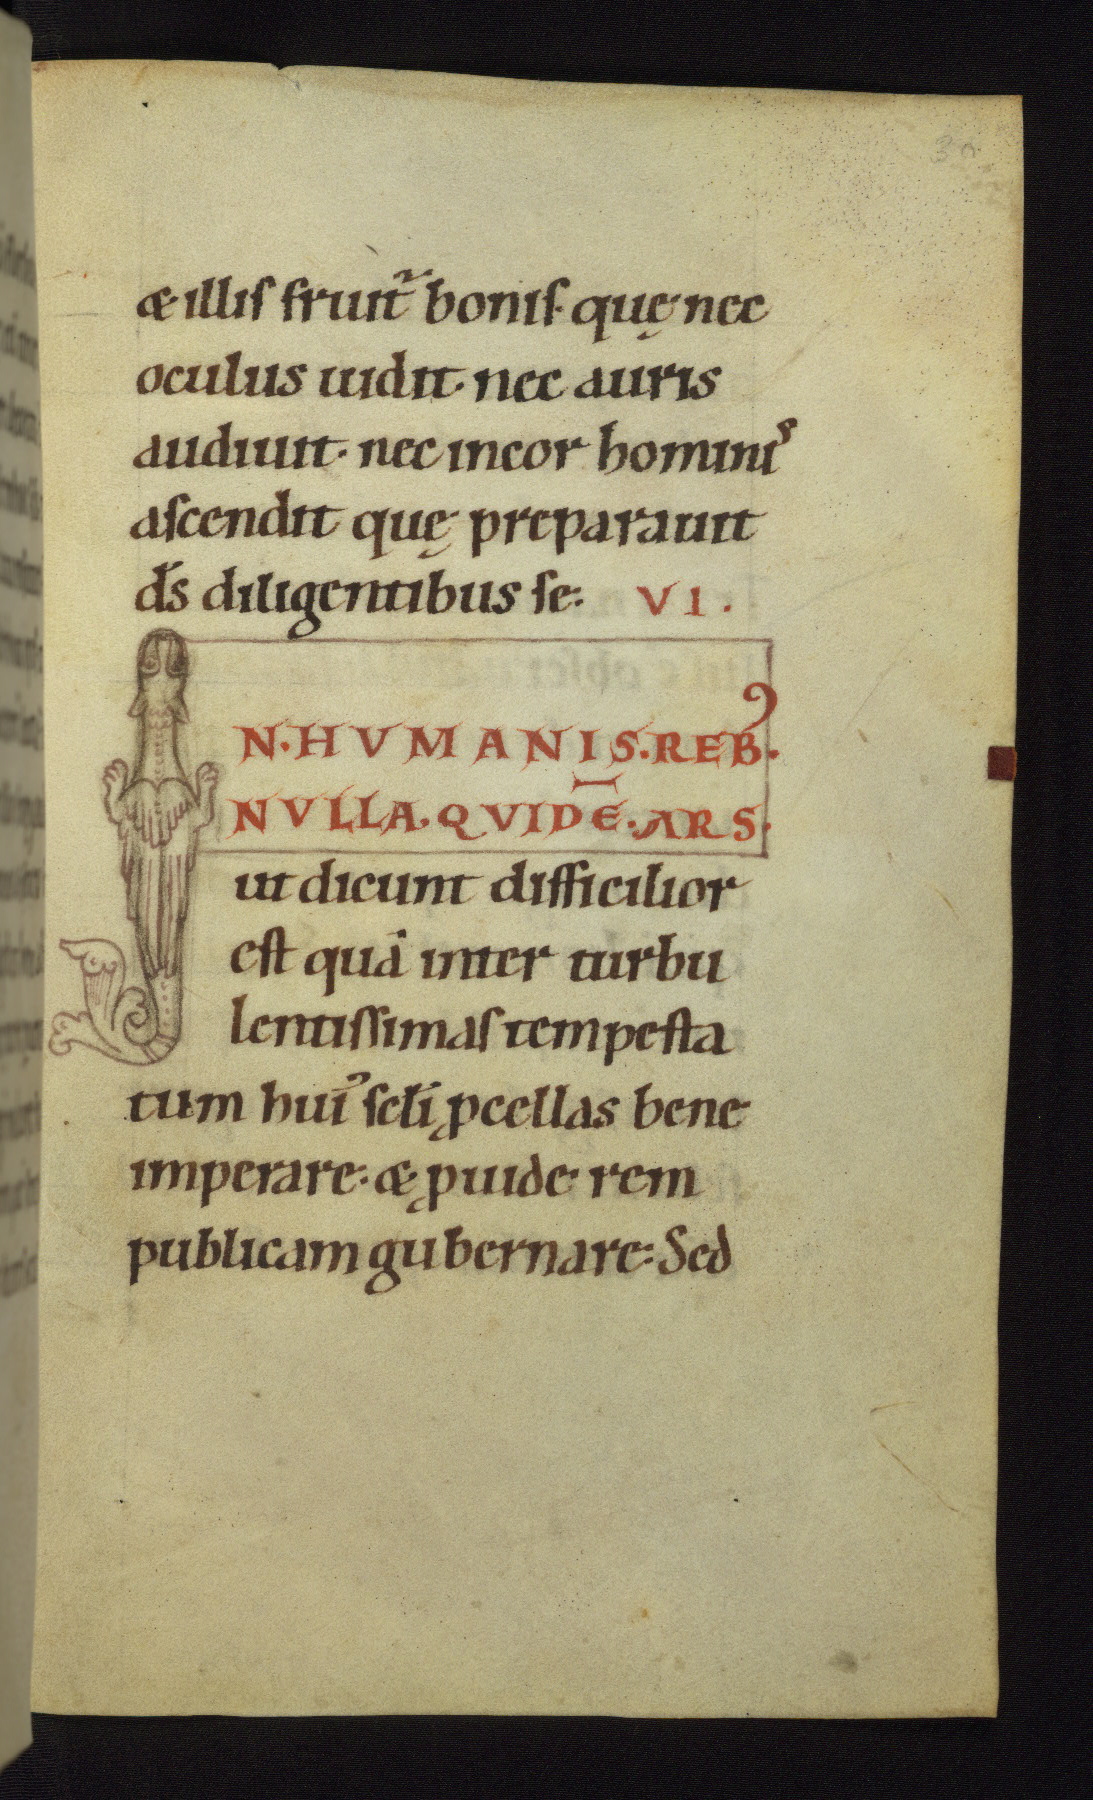 30
æ illis fruit᷑ bonis. quę nec
oculus uidit. nec auris
audiuit. nec incor hominis
ascendit quę preparauit
d̄s diligentibus se. VI.
IN. HVMANIS. REBꝰ.
NVLLA. QVIDĒ. ARS.
ut dicunt difficilior
est quā inter turbu
lentissimas tempesta
tum huiꝰ sc̄li ꝓcellas bene
imperare. æ ꝓuide rem
publicam gubernare. Sed